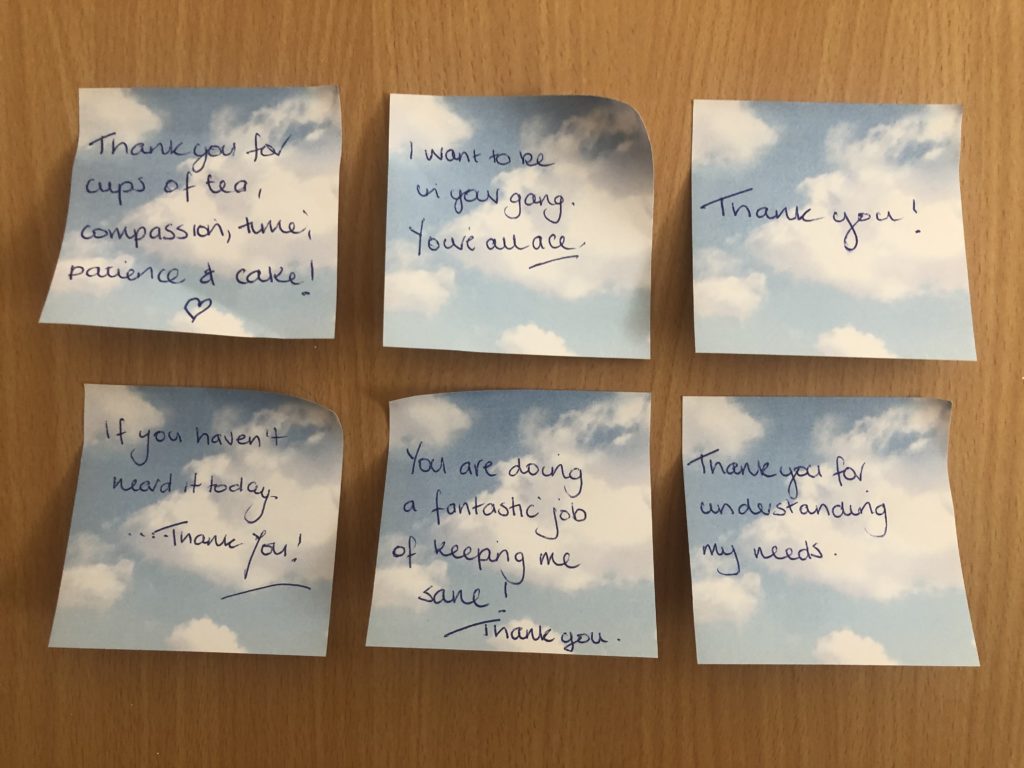 Thank you for
cups of tea,
compassion, time,
patience & cake!
♡
I want to be
in your gang.
You're all ace.
Thank you!
If you haven't
heard it today.
....Thank You!
You are doing
a fantastic job
of keeping me
sane!
Thank you.
Thank you for
understanding
my needs.